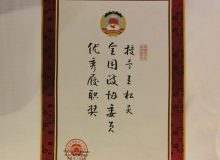 授予王
全国政协委员
优秀履职奖